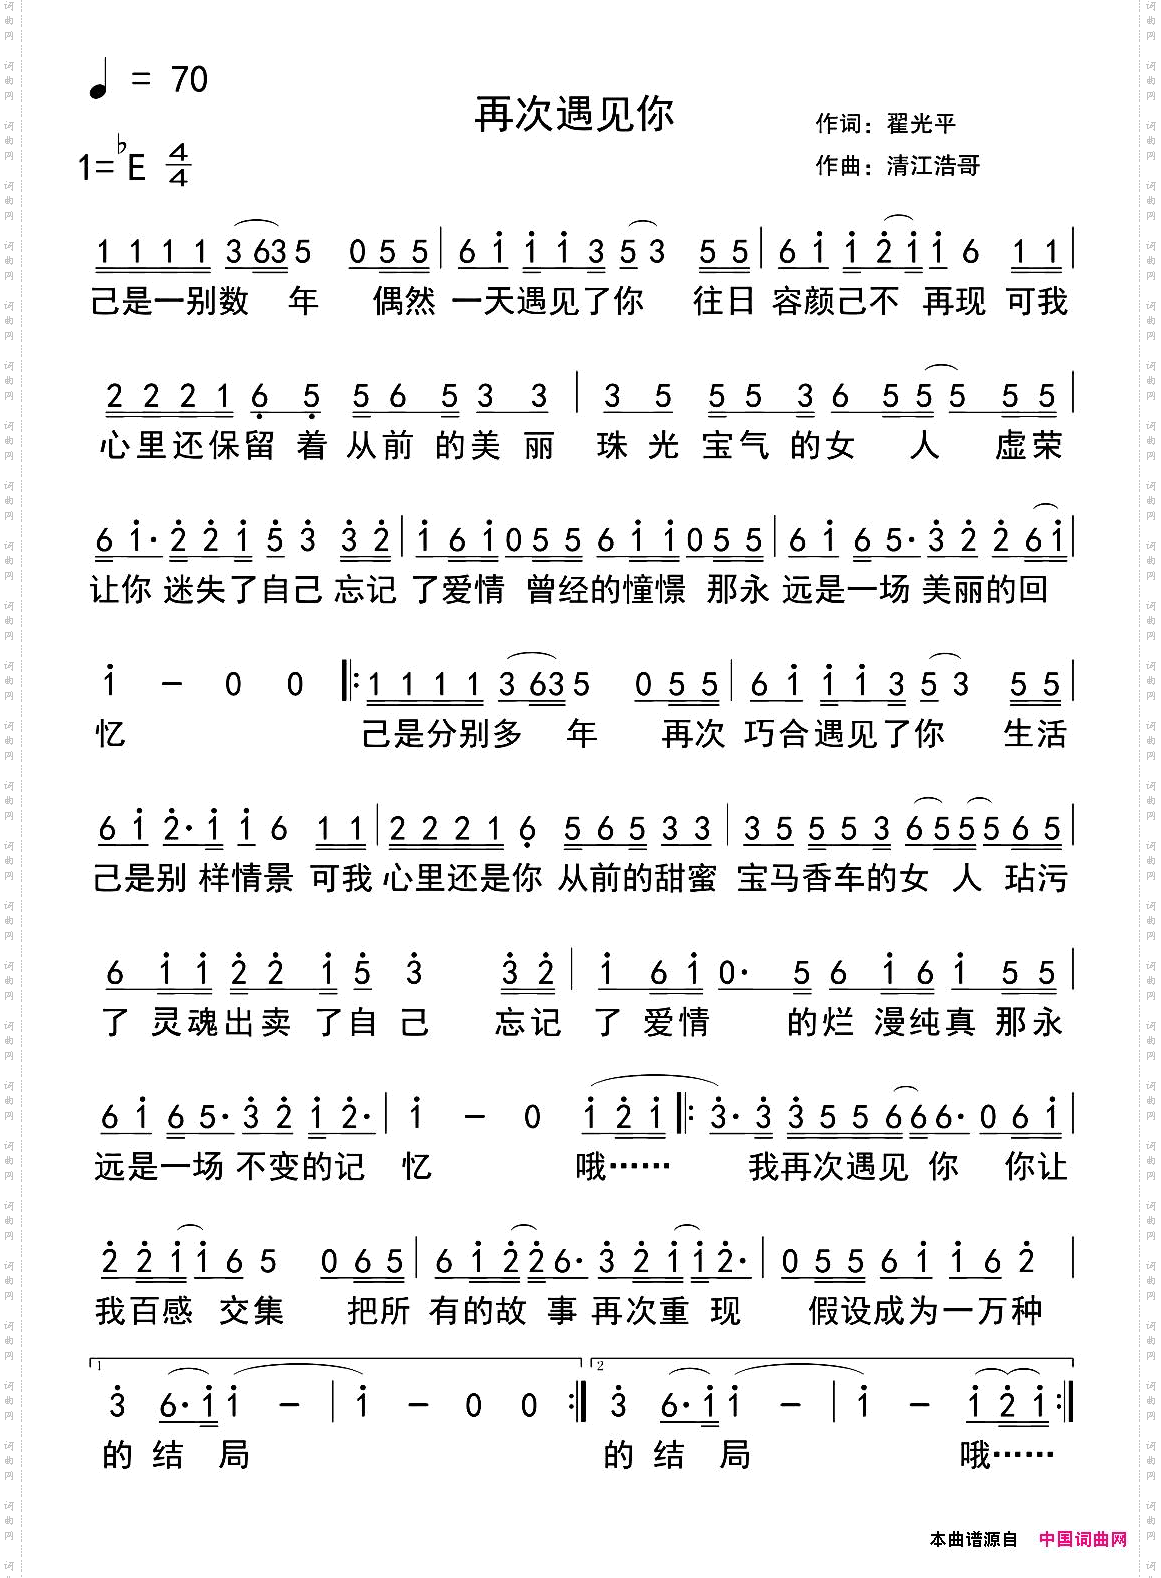 ♩ = 70
再次遇见你
作词：翟光平
1=♭E 4/4
作曲：清江浩哥
1 1 1 1 3 6 3 5 0 5 5 | 6 i i i 3 5 3 5 5 | 6 i i 2 i i 6 1 1 |
己是一别数 年 偶然 一天遇见了你 往日 容颜己不 再现 可我
2 2 2 1 6 5 5 6 5 3 3 | 3 5 5 5 3 6 5 5 5 5 5 |
心里还保留 着 从前 的美 丽 珠 光 宝气 的女 人 虚荣
6 i· 2 2 i 5 3 3 2 | i 6 i 0 5 5 6 i i 0 5 5 | 6 i 6 5· 3 2 2 6 i |
让你 迷失了自己 忘记 了爱情 曾经的憧憬 那永 远是一场 美丽的回
i － 0 0 ‖: 1 1 1 1 3 6 3 5 0 5 5 | 6 i i i 3 5 3 5 5 |
忆 己是分别多 年 再次 巧合遇见了你 生活
6 i 2· i i 6 1 1 | 2 2 2 1 6 5 6 5 3 3 | 3 5 5 5 3 6 5 5 5 6 5 |
己是别 样情景 可我 心里还是你 从前的甜蜜 宝马香车的女 人 玷污
6 i i 2 2 i 5 3 3 2 | i 6 i 0· 5 6 i 6 i 5 5 |
了 灵魂出卖 了自 己 忘记 了 爱情 的烂 漫纯真 那永
6 i 6 5· 3 2 i 2· | i － 0 i 2 i ‖: 3· 3 3 5 5 6 6 6· 0 6 i |
远是一场 不变的记 忆 哦…… 我再次遇见 你 你让
2 2 i i 6 5 0 6 5 | 6 i 2 2 6· 3 2 i i 2· | 0 5 5 6 i i 6 2 |
我百感 交集 把所 有的故 事 再次重 现 假设成为一万种
1 2
3 6· i i － | i － 0 0 :‖ 3 6· i i － | i － i 2 i :‖
的 结 局 的 结 局 哦……
本曲谱源自 中国词曲网